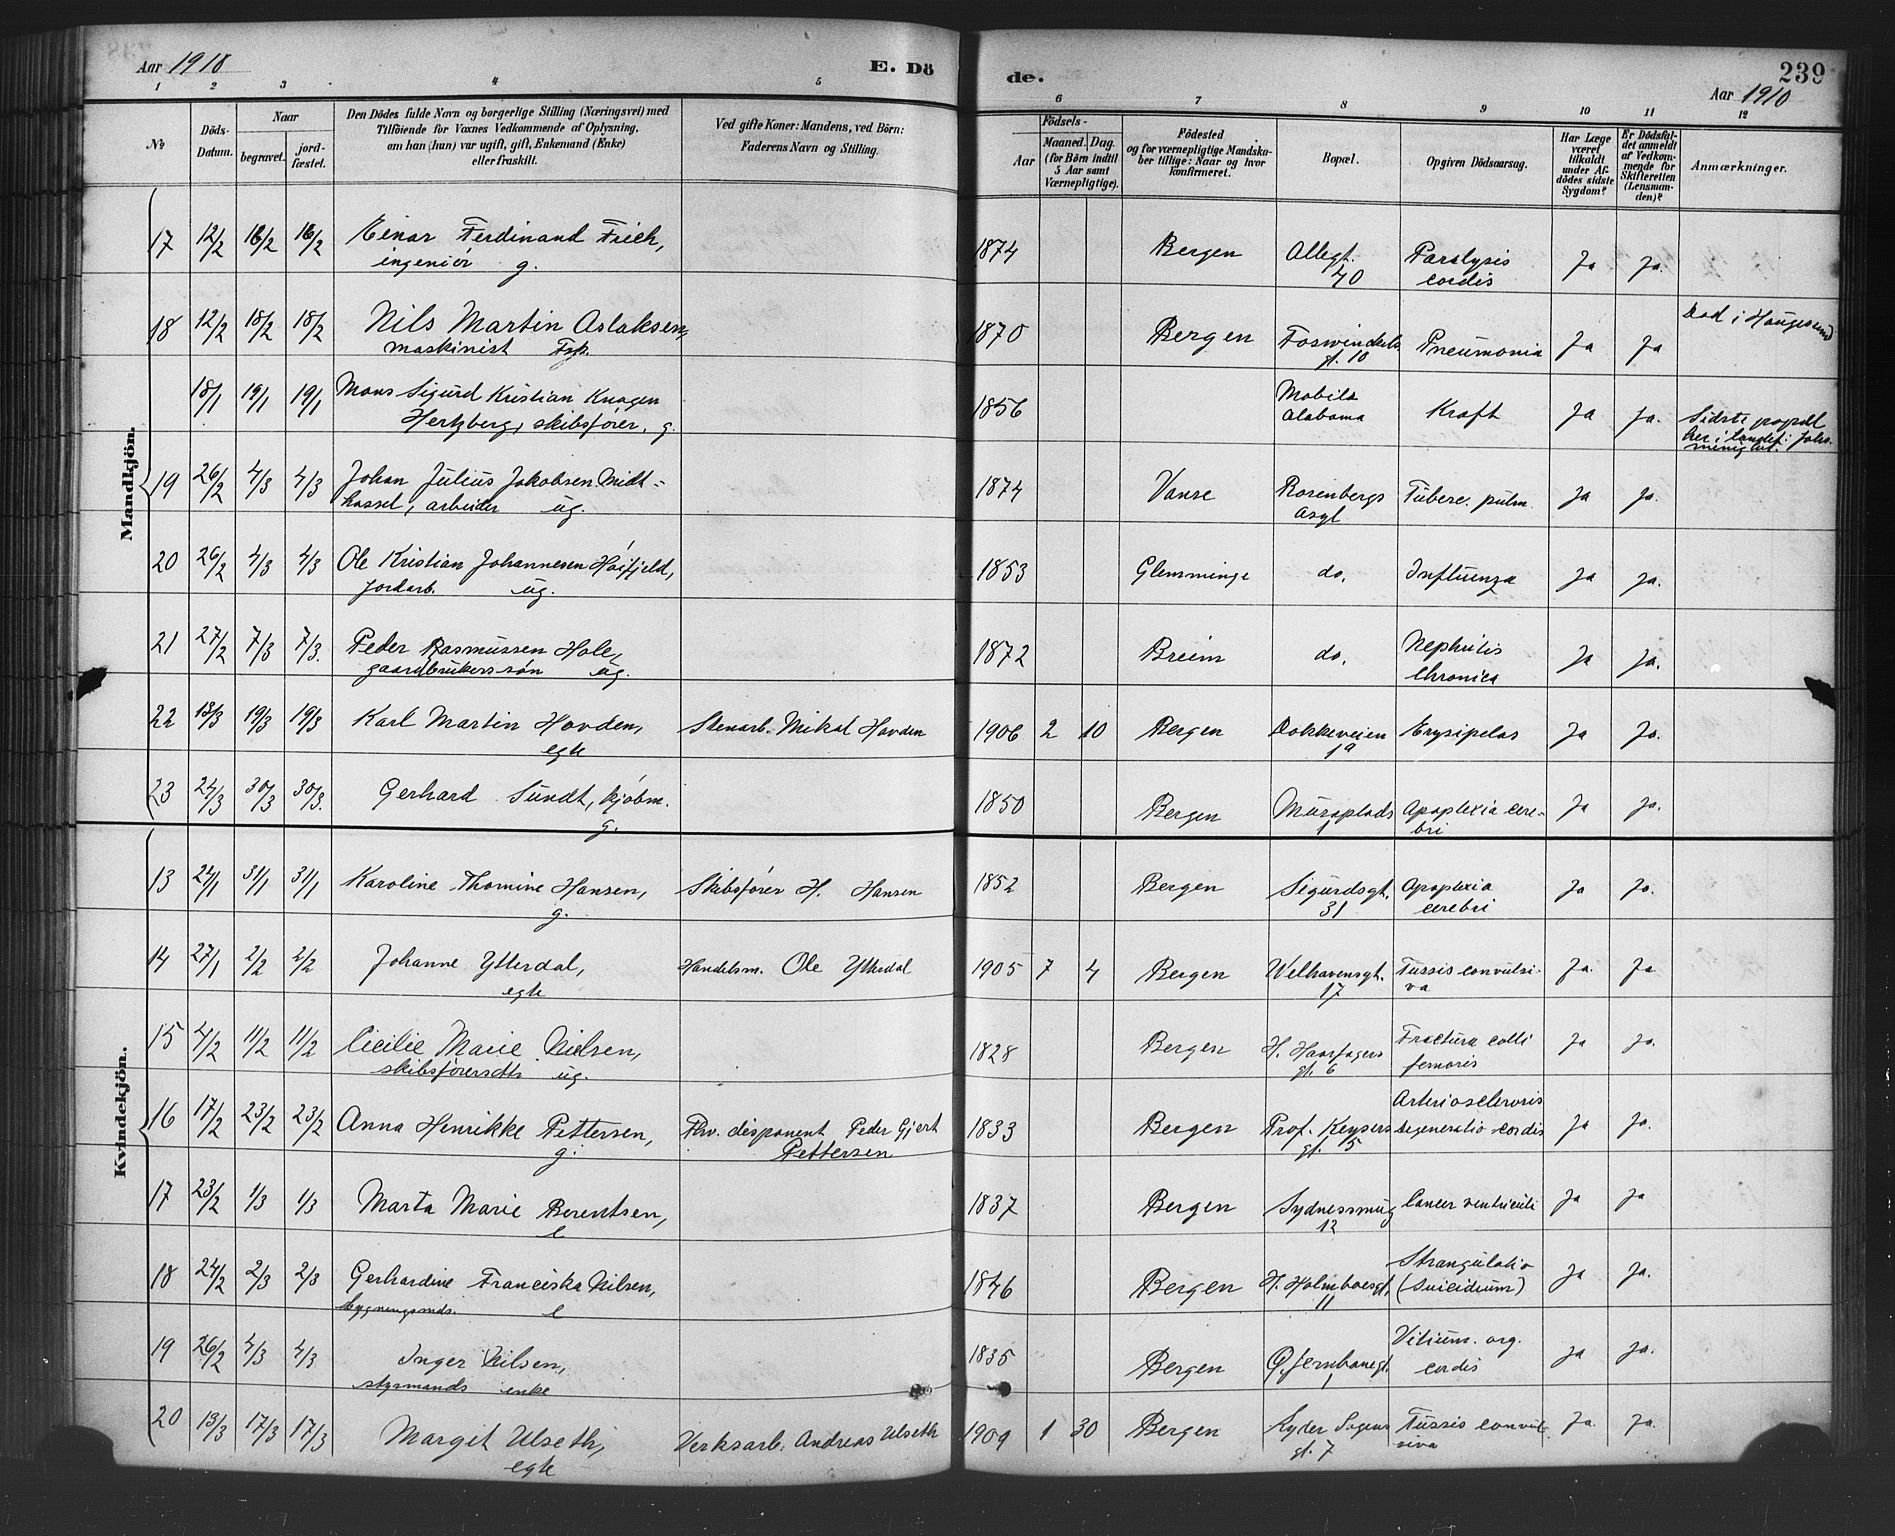 Aar 1910
E. Dö
de.
239
Aar 1910
1 2 3 4 5 6 7 8 9 10 11 12
No
Döds-Datum.
Naar
begravet.
jord-fæstet.
Den Dödes fulde Navn og borgerlige Stilling (Næringsvei) med
Tilföiende for Voxnes Vedkommende af Oplysning,
om han (hun) var ugift, gift, Enkemand (Enke)
eller fraskilt.
Ved gifte Koner: Mandens, ved Börn:
Faderens Navn og Stilling.
Födsels-
Aar
Maaned. Dag.
(for Börn indtil
5 Aar samt
Værnepligtige).
Födested
og for værnepligtige Mandska-
ber tillige: Naar og hvor
konfirmeret.
Bopæl.
Opgiven Dödsaarsag.
Har Læge
været
tilkaldt
under Af-
dödes sidste
Sygdom?
Er Dödsfal-
det anmeldt
af Vedkom-
mende for
Skifteretten
(Lensman-
den)?
Anmærkninger.
Mandkjön.
17 12/2 16/2 16/2 Einar Ferdinand Frich, 1874 Bergen Allegt. Paralysis Ja Ja.
ingeniör g. 40 cordis
18 12/2 18/2 18/2 Nils Martin Aslaksen, 1870 Bergen Foswinckels Pneumonia Ja Ja Död i Haugesund
maskinist Fsk. gt. 18
18/1 19/1 19/1 Mons Sigurd Kristian Knagen 1856 Mobile Kræft Ja Ja. Sidste
Hertzberg, skibsförer, g. Alabama her i landet:
19 26/2 4/3 4/3 Johan Julius Jakobsen Midt- 1874 Vanse Rosenbergs Tuberc. pulm. Ja Ja.
hassel, arbeider ug. Asyl
20 26/2 4/3 4/3 Ole Kristian Johannesen Höifjeld, 1853 Glemminge do. Influenza Ja Ja.
jordarb. ug.
21 27/2 7/3 7/3. Peder Rasmussen Hole, 1872 Breim do. Nephritis Ja Ja.
gaardbrukerssön ug. chronica
22 13/3 19/3 19/3 Karl Martin Hovden, Stenarb. Mikal Hovden 1906 2 10 Bergen Dokkeveien Erysipelas Ja Ja.
egte 1a
23 24/3 30/3 30/3. Gerhard Sundt, kjöbm. 1850 Bergen Muraplads Apoplexia cere- Ja Ja.
g. 1 bri
Kvindekjön.
13 24/1 31/1 31/1 Karoline Thomine Hansen, Skibsförer H. Hansen 1852 Bergen Sigurdsgt. Apoplexia Ja Ja.
g. 31 cerebri
14 27/1 2/2 2/2 Johanne Ytterdal, Handelsm. Ole Ytterdal 1905 7 4 Bergen Welhavensgt. Tussis convulsi- Ja. Ja
egte 17 va
15 4/2 11/2 11/2 Cicilie Marie Nielsen, 1828 Bergen H. Haarfagers Fractura colli Ja Ja.
skibsförersdtr ug. gt. 6 femoris
16 17/2 23/2 23/2 Anna Henrikke Pettersen, Fhv. disponent Peder Gjert 1833 Bergen Prof. Keysers Arteriosclerosis Ja Ja.
g. Pettersen gt. 5 degeneratio cordis
17 23/2 1/3 1/3 Marta Marie Berentsen, 1837 Bergen Sydnessmug Cancer ventriculi Ja Ja
e 12
18 24/2 2/3 2/3 Gerhardine Franciska Nilsen, 1846 Bergen H. Holmboesgt. Strangulatio Ja Ja.
bygningsmds. e 11 (Suicidium)
19 26/2 4/3 4/3 Inger Nilsen, 1835 Bergen Ö. Jernbanegt. Vitium. org. Ja Ja.
styrmands enke 1 cordis
20 13/3 17/3 17/3 Margit Ulseth, Verksarb. Andreas Ulseth 1909 1 30 Bergen Ryder Sagens Tussis convul- Ja. Ja.
egte gt. 7 siva